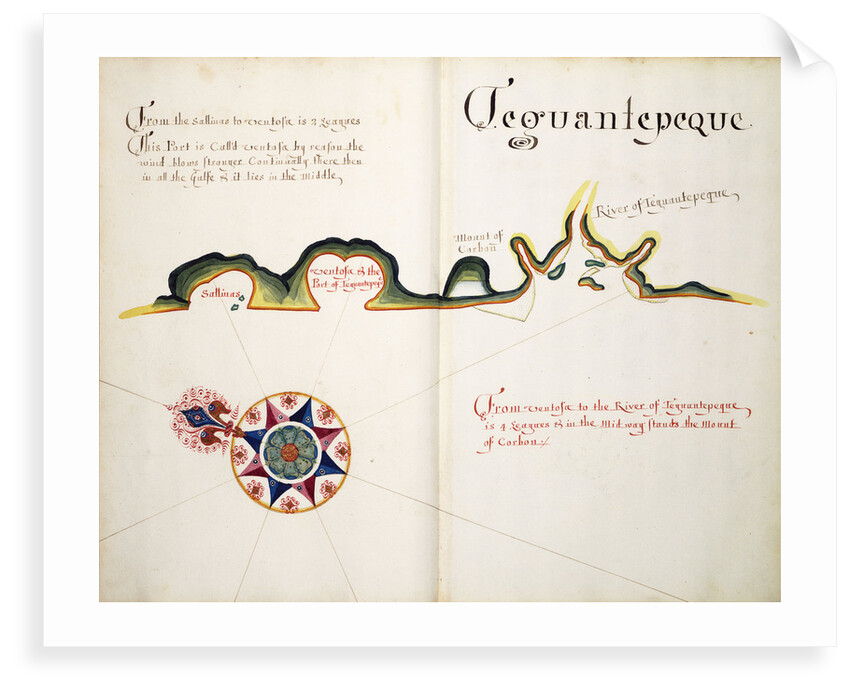 From the Sallinas to Ventosa is 2 Leagues
This Port is Call'd Ventosa by reason the
wind blows stronger Continually there then
in all the Gulfe & it lies in the Middle
Teguantepeque.
River of Teguantepeque
Mount of
Corbon
Sallinas
Ventosa & the
Port of Teguantepeq
From Ventosa to the River of Teguantepeque
is 4 Leagues & in the Midway stands the Mount
of Corbon